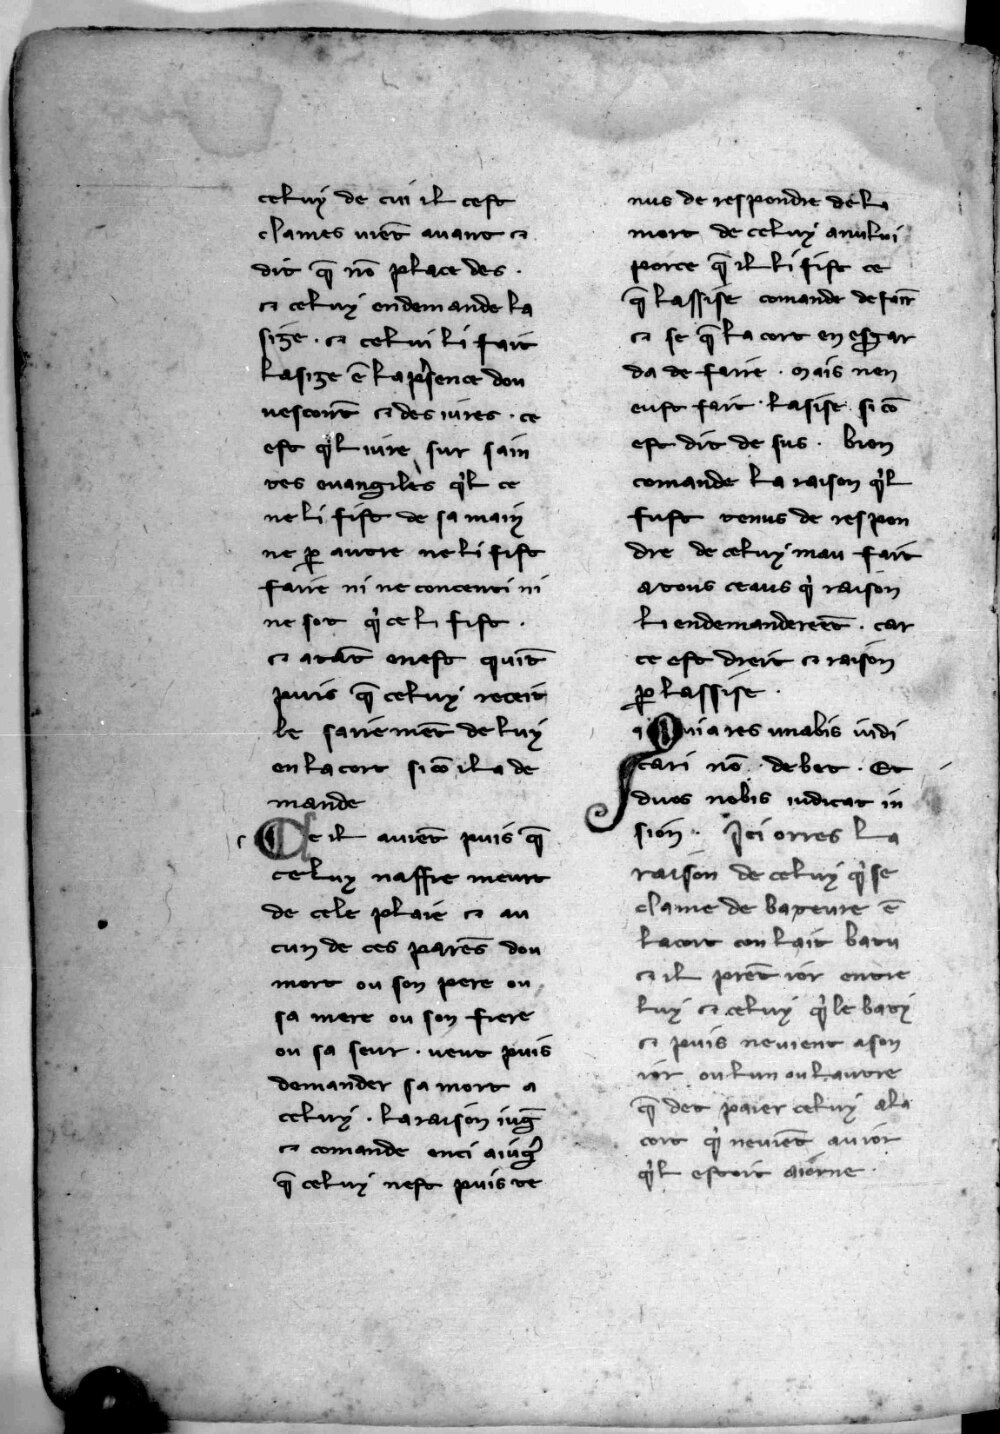 celuy de cui il cest
clames uiẽt auant ⁊
dit q̃ nõ place des ·
⁊ celuy endemande la
size · ⁊ celui li fait
lasize ẽ lap̃sence dou
uescont̃ ⁊ des iures · ce
est q̉l iure sur sain
tes euangiles q̉l ce
ne li fist de sa main
ne ꝑ autre ne li fist
faire ni ne concenti ni
ne sot q̉ ce li fist ·
⁊ atãt enest quit̃
puis q̃ celuy receit
le sairemẽt de luy
en la cort si cõ il a de
mande
Ce il auiẽt puis q̃
celuy naffre meurt
de cele plaie ⁊ au
cun de ces parẽs dou
mort ou son pere ou
sa mere ou son frere
ou sa seur · ueut puis
demander sa mort a
celuy · la raison iug̃
⁊ comande enci aiug̉
q̃ celuy nest puis te
nus de respondre de la
mort de celuy anului
porce q̃ il li fist ce
q̃ lassise comande de fair̃
⁊ se q̃ la cort en esgar
da de faire · mais nen
eust fait · lasise si cõ
est dit de sus · bien
comande la raison q̉l
fust tenus de respon
dre de celuy mau fait
a tous ceaus q̉ raison
li endemandereẽt · car
ce est dreit ⁊ raison
ꝑ lassise ·
Quia res unabis iudi
cari nõ debet · Et
duos nobis iudicat in
sion · Ici orres la
raison de celuy q̉ se
clame de bateure ẽ
la cort con lait batu
⁊ il prẽt ior entre
luy ⁊ celuy q̉ le baty
⁊ puis ne uient a son
ior ou lun ou lautre
q̃ det paier celuy a la
cort q̉ ne uiẽt au ior
q̉l estoit aiorne ·